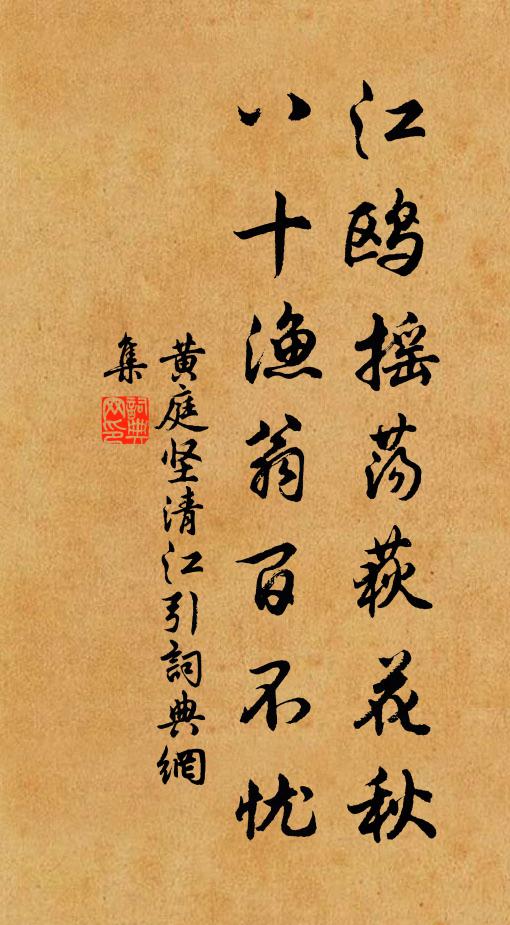 江鸥摇荡荻花秋
八十渔翁百不忧
黄庭坚清江引詞典網
集
詞典
网印